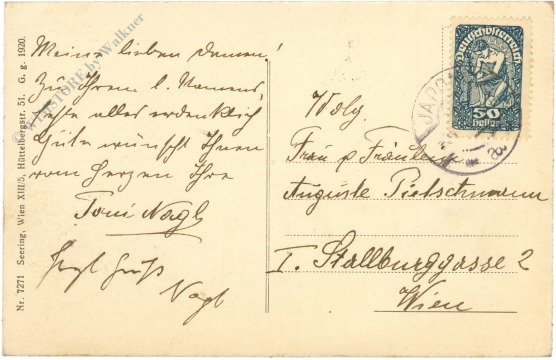 Meine lieben Damen!
Zu Ihrem l. Namens,
feste alles erdenklich
Gute wünscht Ihnen
vom Herzen Ihre
Toni Nagl
Hrzl. Gruß
Nagl
Wolg.
Frau & Fräulein
Auguste Pietschmann
I. Stallburggasse 2
Wien
Deutschösterreich
50
heller
Nr. 7271 Seering, Wien XIII/5, Hüttelbergstr. 51. G. g. 1920.
© W-STORE by Walkner